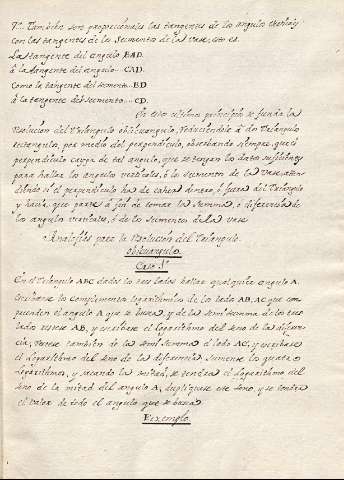 7º. Tambien son proporcionales las tangentes de los angulos verticales
con las tangentes de los segmentos de la vase, esto es.
La tangente del angulo BAD.
â la tangente del angulo... CAD.
Como la tangente del segmento... BD
â la tangente del segmento.... CD.
En este ultimo principio se funda la
resolucion del triangulo obliquangulo, reduciendole â dos triangulos
rectangulos, por medio del perpendiculo, observando siempre, que el
perpendiculo cayga de tal angulo, que se tengan los datos suficientes
para hallar los angulos verticales, ô los segmentos de la vase, aten-
diendo si el perpendiculo ha de caher dentro, ô fuera del triangulo
y hacia que parte â fin de tomar la summa, ô diferencia de
los angulos verticales, ô de los segmentos de la vase
Analogias para la resolucion del triangulo
obliquangulo
Caso 1º
En el triangulo ABC dados los tres lados hallar qualquier angulo A.
Escribanse los complementos logarithmicos de los lados AB, AC que com-
prenden el angulo A que se busca, y de la semisumma de los tres
lados restese AB, y escribase el logarithmo del seno de la diferen-
cia, restese tambien de la semisumma el lado AC, y escribase
el logarithmo del seno de la diferencia sumense los quatro
logarithmos, y sacando la mitad, se tendra el logarithmo del
seno de la mitad del angulo A, dupliquese este seno, y se tendra
el valor de todo el angulo que se busca
Exemplo.